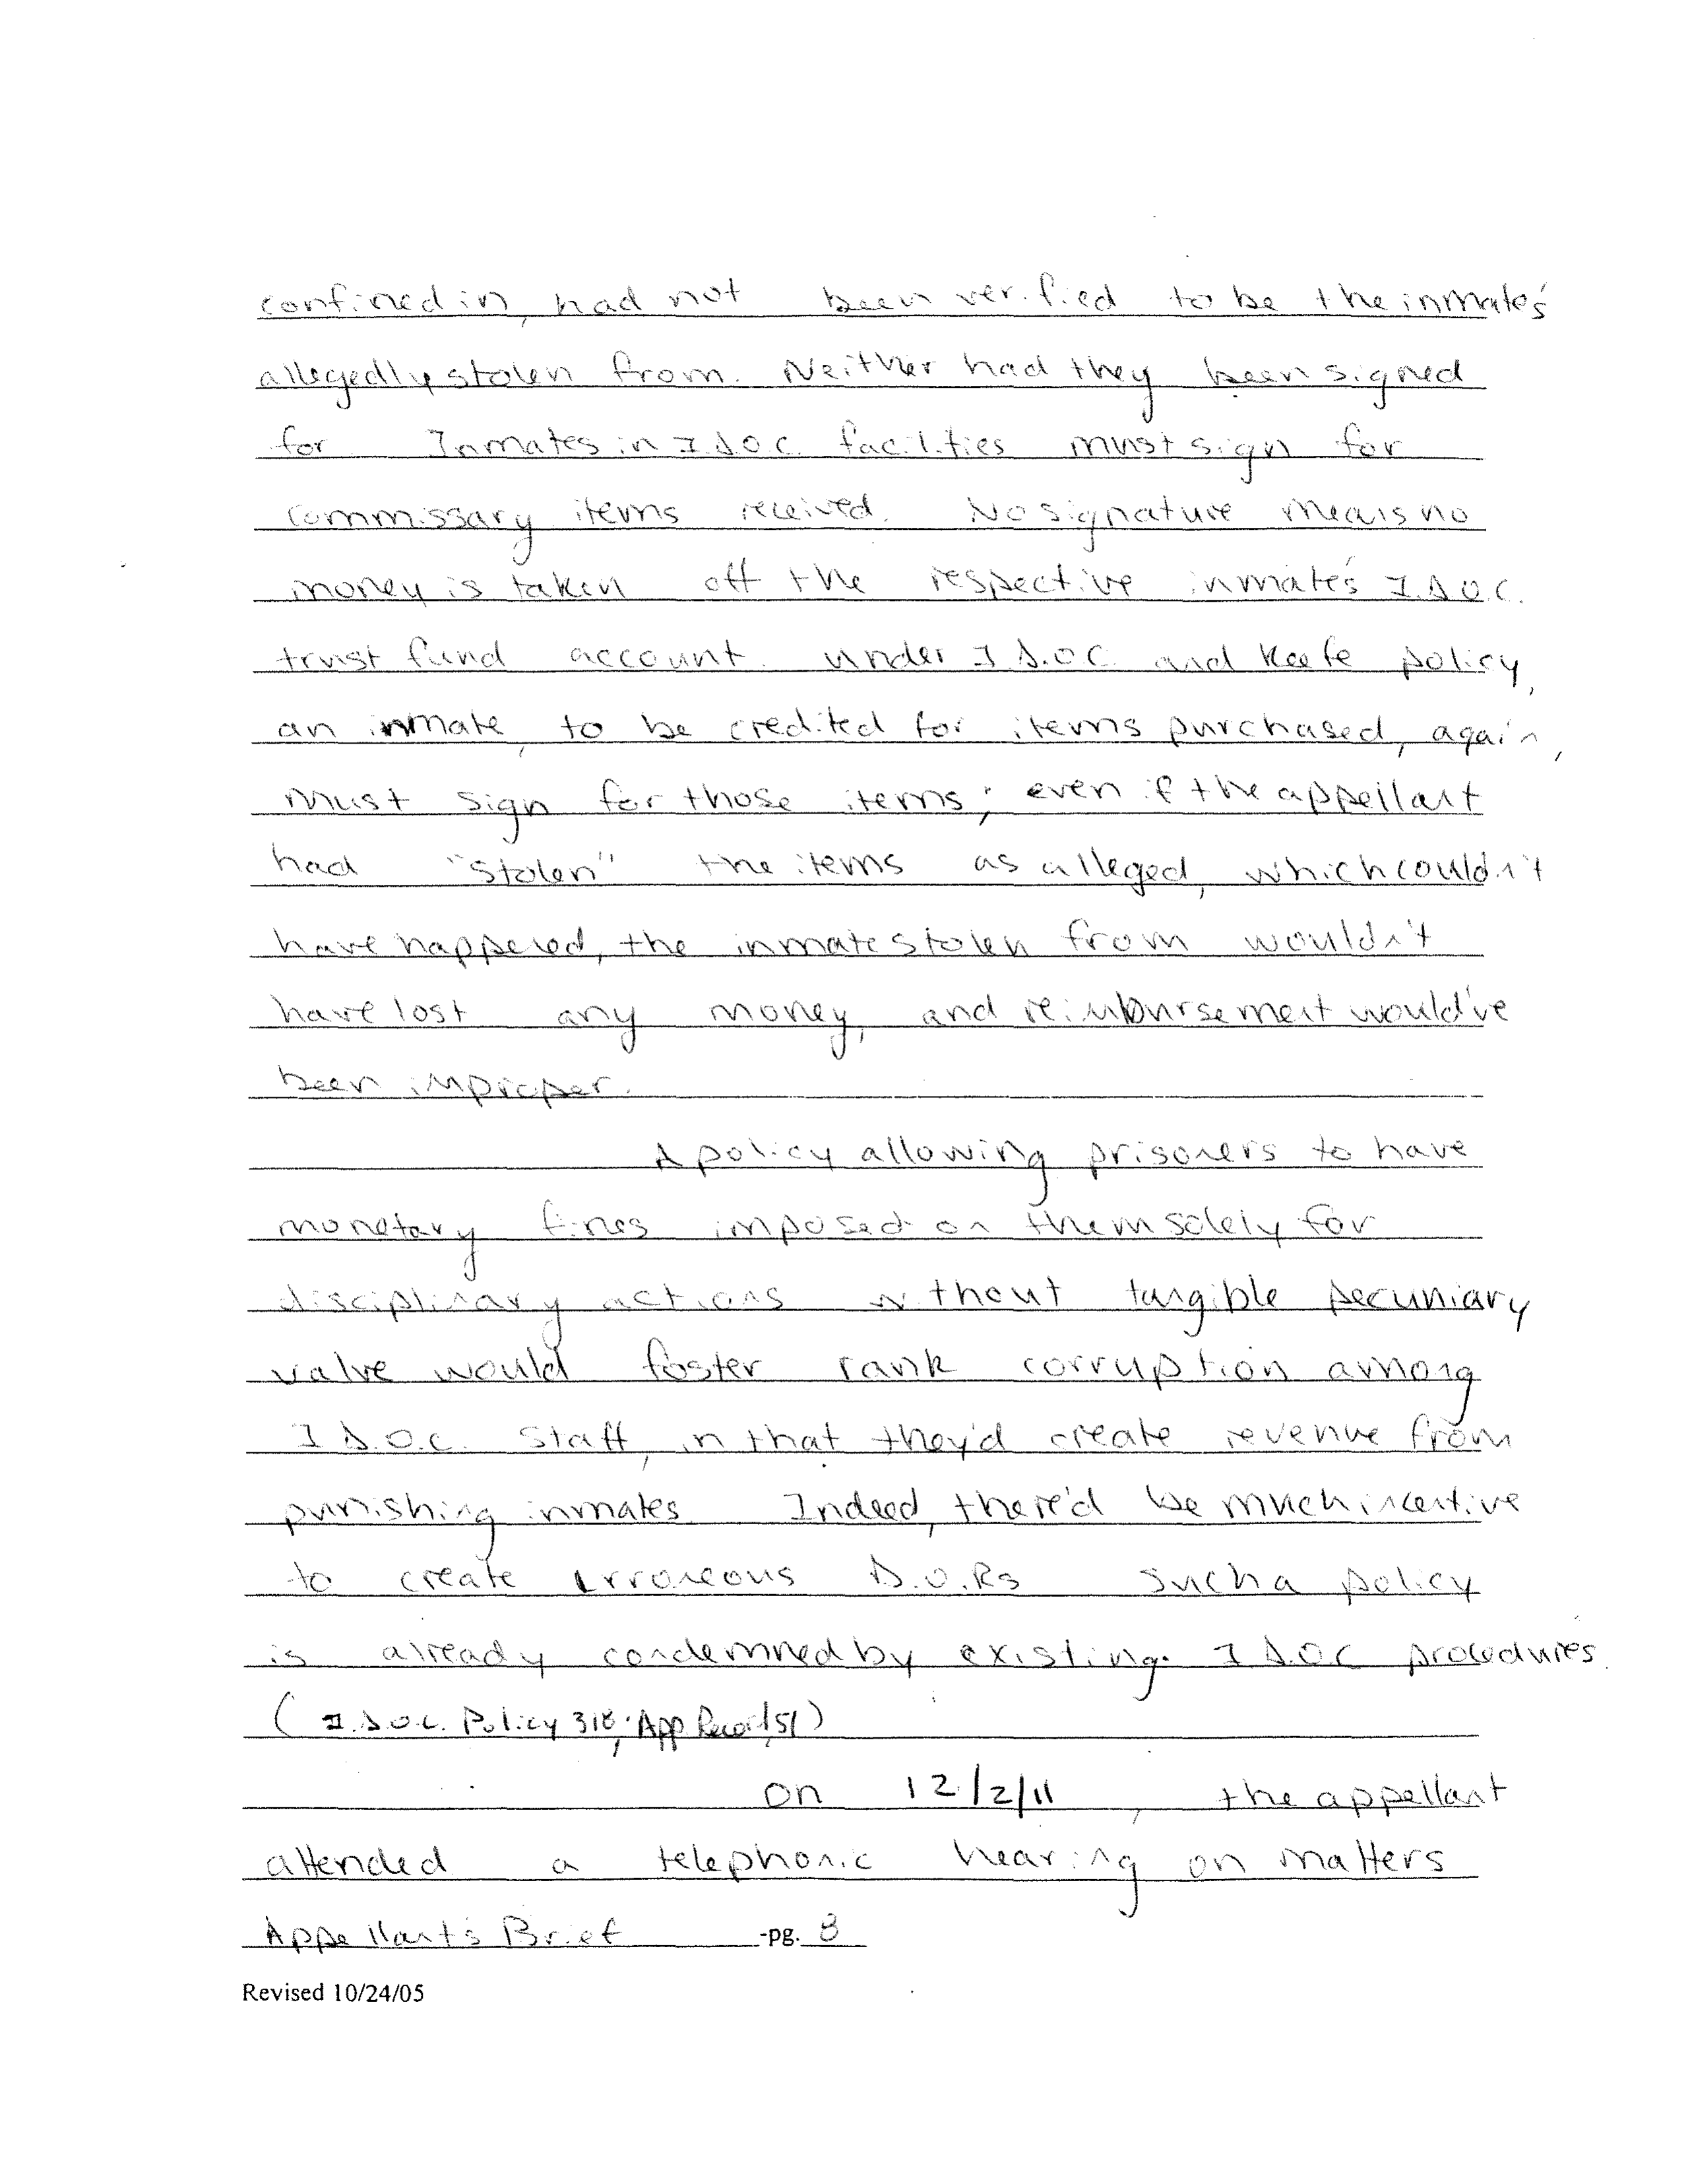 confined in, had not been verified to be the inmate's
allegedly stolen from. Neither had they been signed
for. Inmates in I.D.O.C. facilities must sign for
commissary items received. No signature means no
money is taken off the respective inmate's I.D.O.C.
trust fund account. Under I.D.O.C. and Keefe policy,
an inmate, to be credited for items purchased, again,
must sign for those items; even if the appellant
had "stolen" the items as alleged, which couldn't
have happened, the inmate stolen from wouldn't
have lost any money, and reimbursement would've
been improper.
A policy allowing prisoners to have
monetary fines imposed on them solely for
disciplinary actions without tangible pecuniary
value would foster rank corruption among
I.D.O.C. staff, in that they'd create revenue from
punishing inmates. Indeed, there'd be much incentive
to create erroneous D.O.Rs. Such a policy
is already condemned by existing I.D.O.C. procedures.
(I.D.O.C. Policy 318; App. Record, 51)
On 12/2/11, the appellant
attended a telephonic hearing on matters
Appellant's Brief -pg. 8
Revised 10/24/05